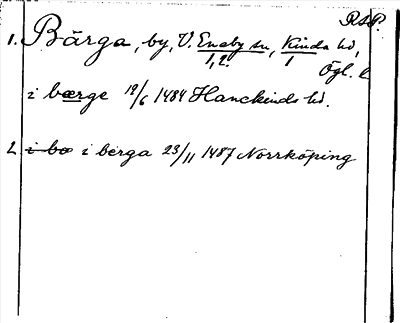 RAP.
1. Bärga, by, V. Eneby sn, Kinda hd,
1, 2. 1
Ögl. l.
i bærge 12/6 1484 Hanekinds hd.
2 i bo i berga 23/11 1487 Norrköping